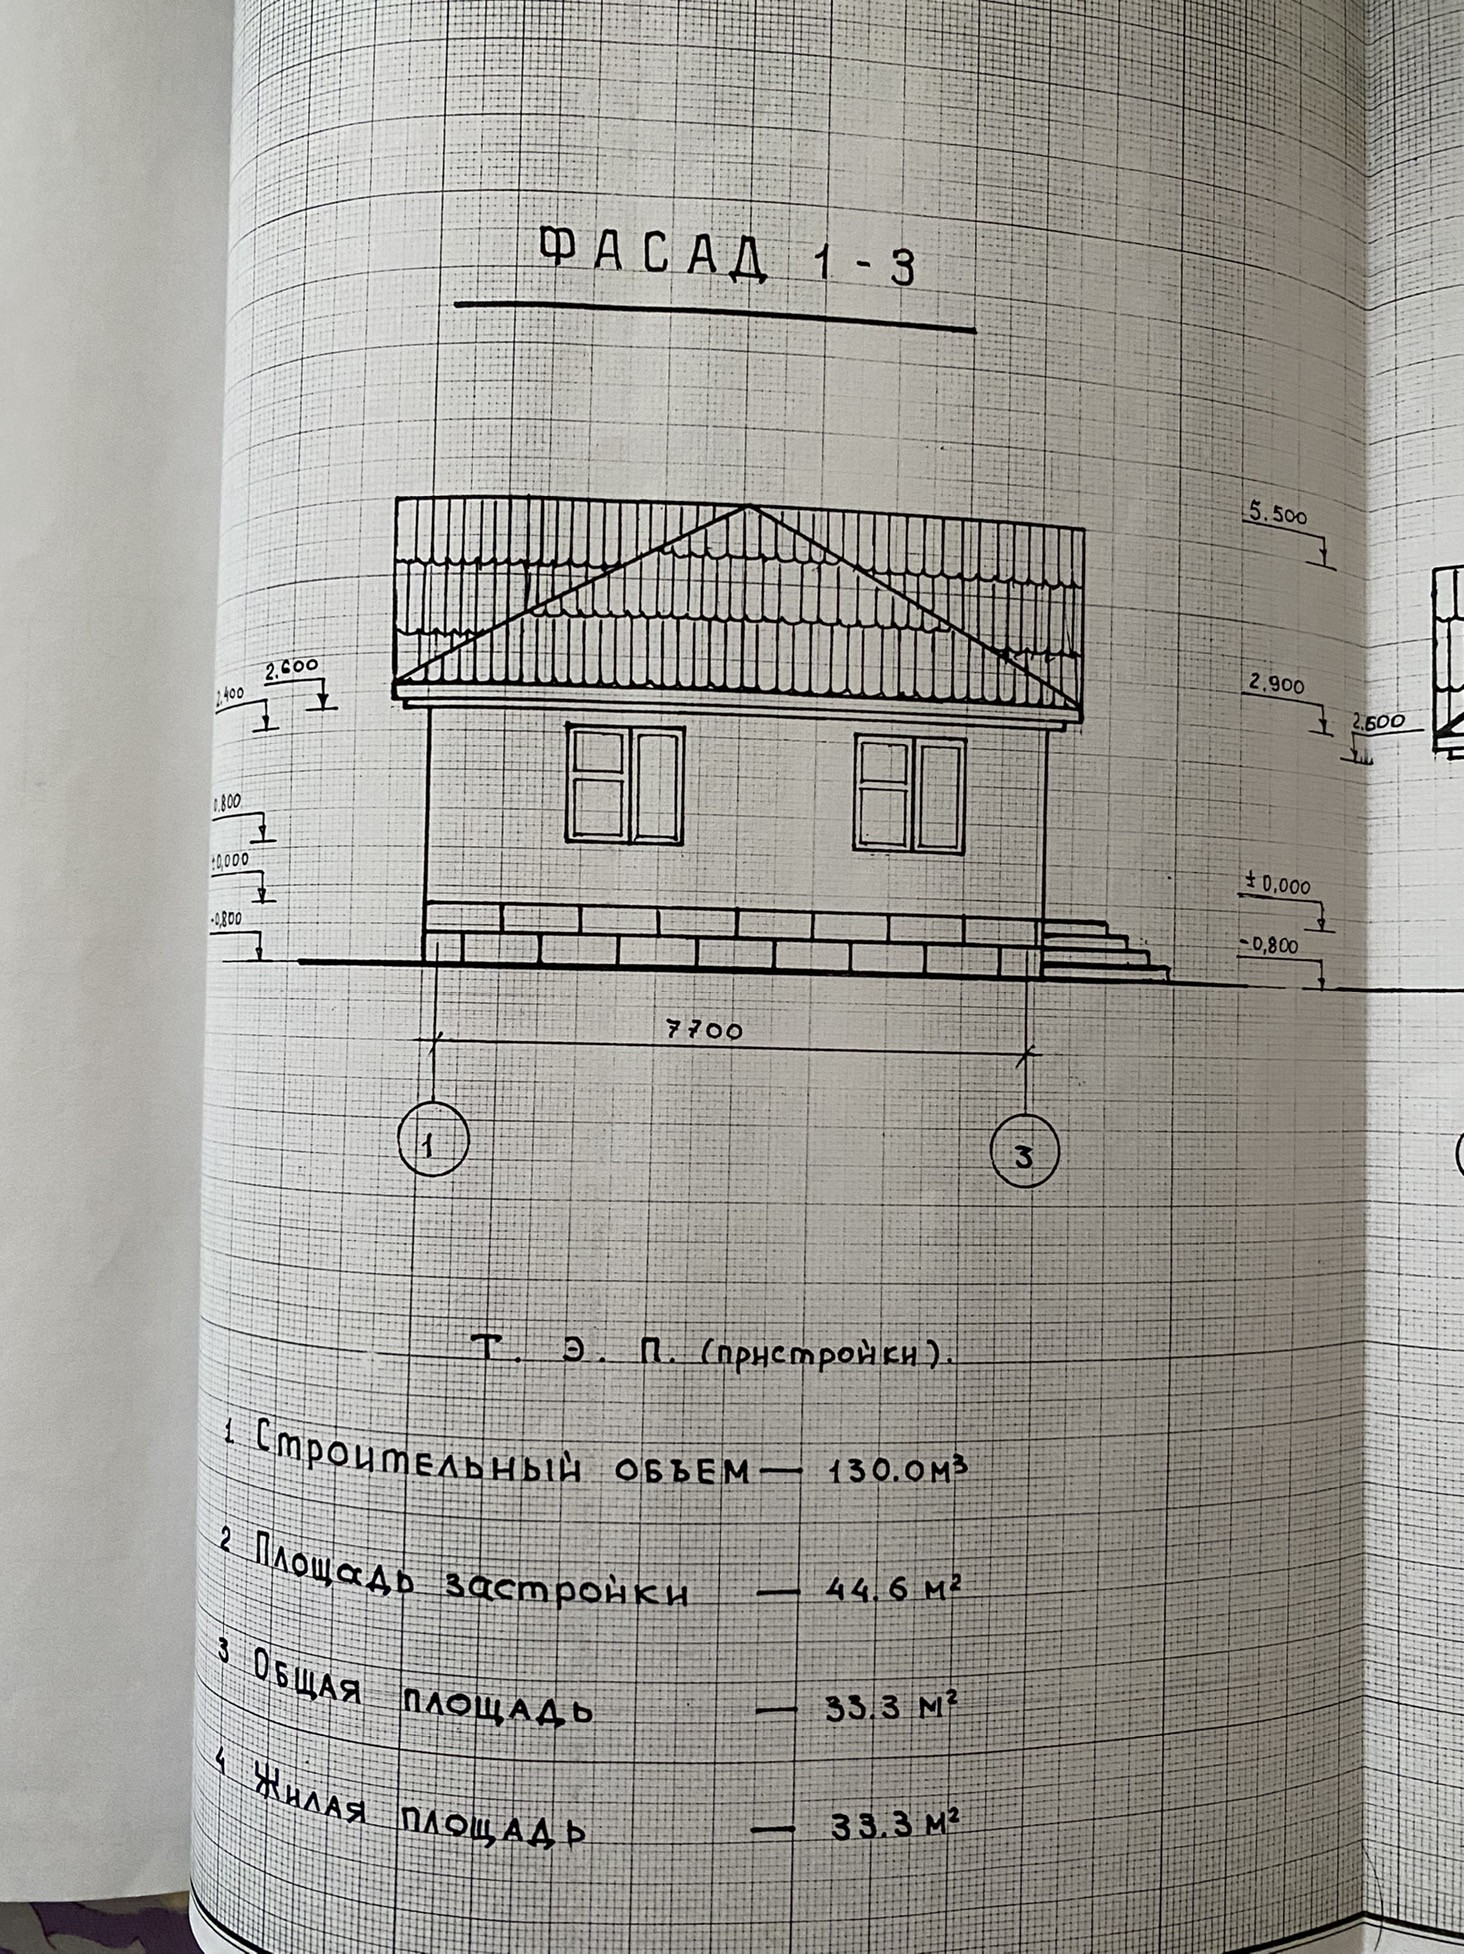 ФАСАД 1-3
5.500
2.600
2.400
2.900
2.600
0.800
±0,000
±0,000
-0,800
-0,800
7700
1
3
Т. Э. П. (пристройки).
1 Строительный объем — 130.0м³
2 Площадь застройки — 44.6 м²
3 Общая площадь — 33.3 м²
4 Жилая площадь — 33.3 м²